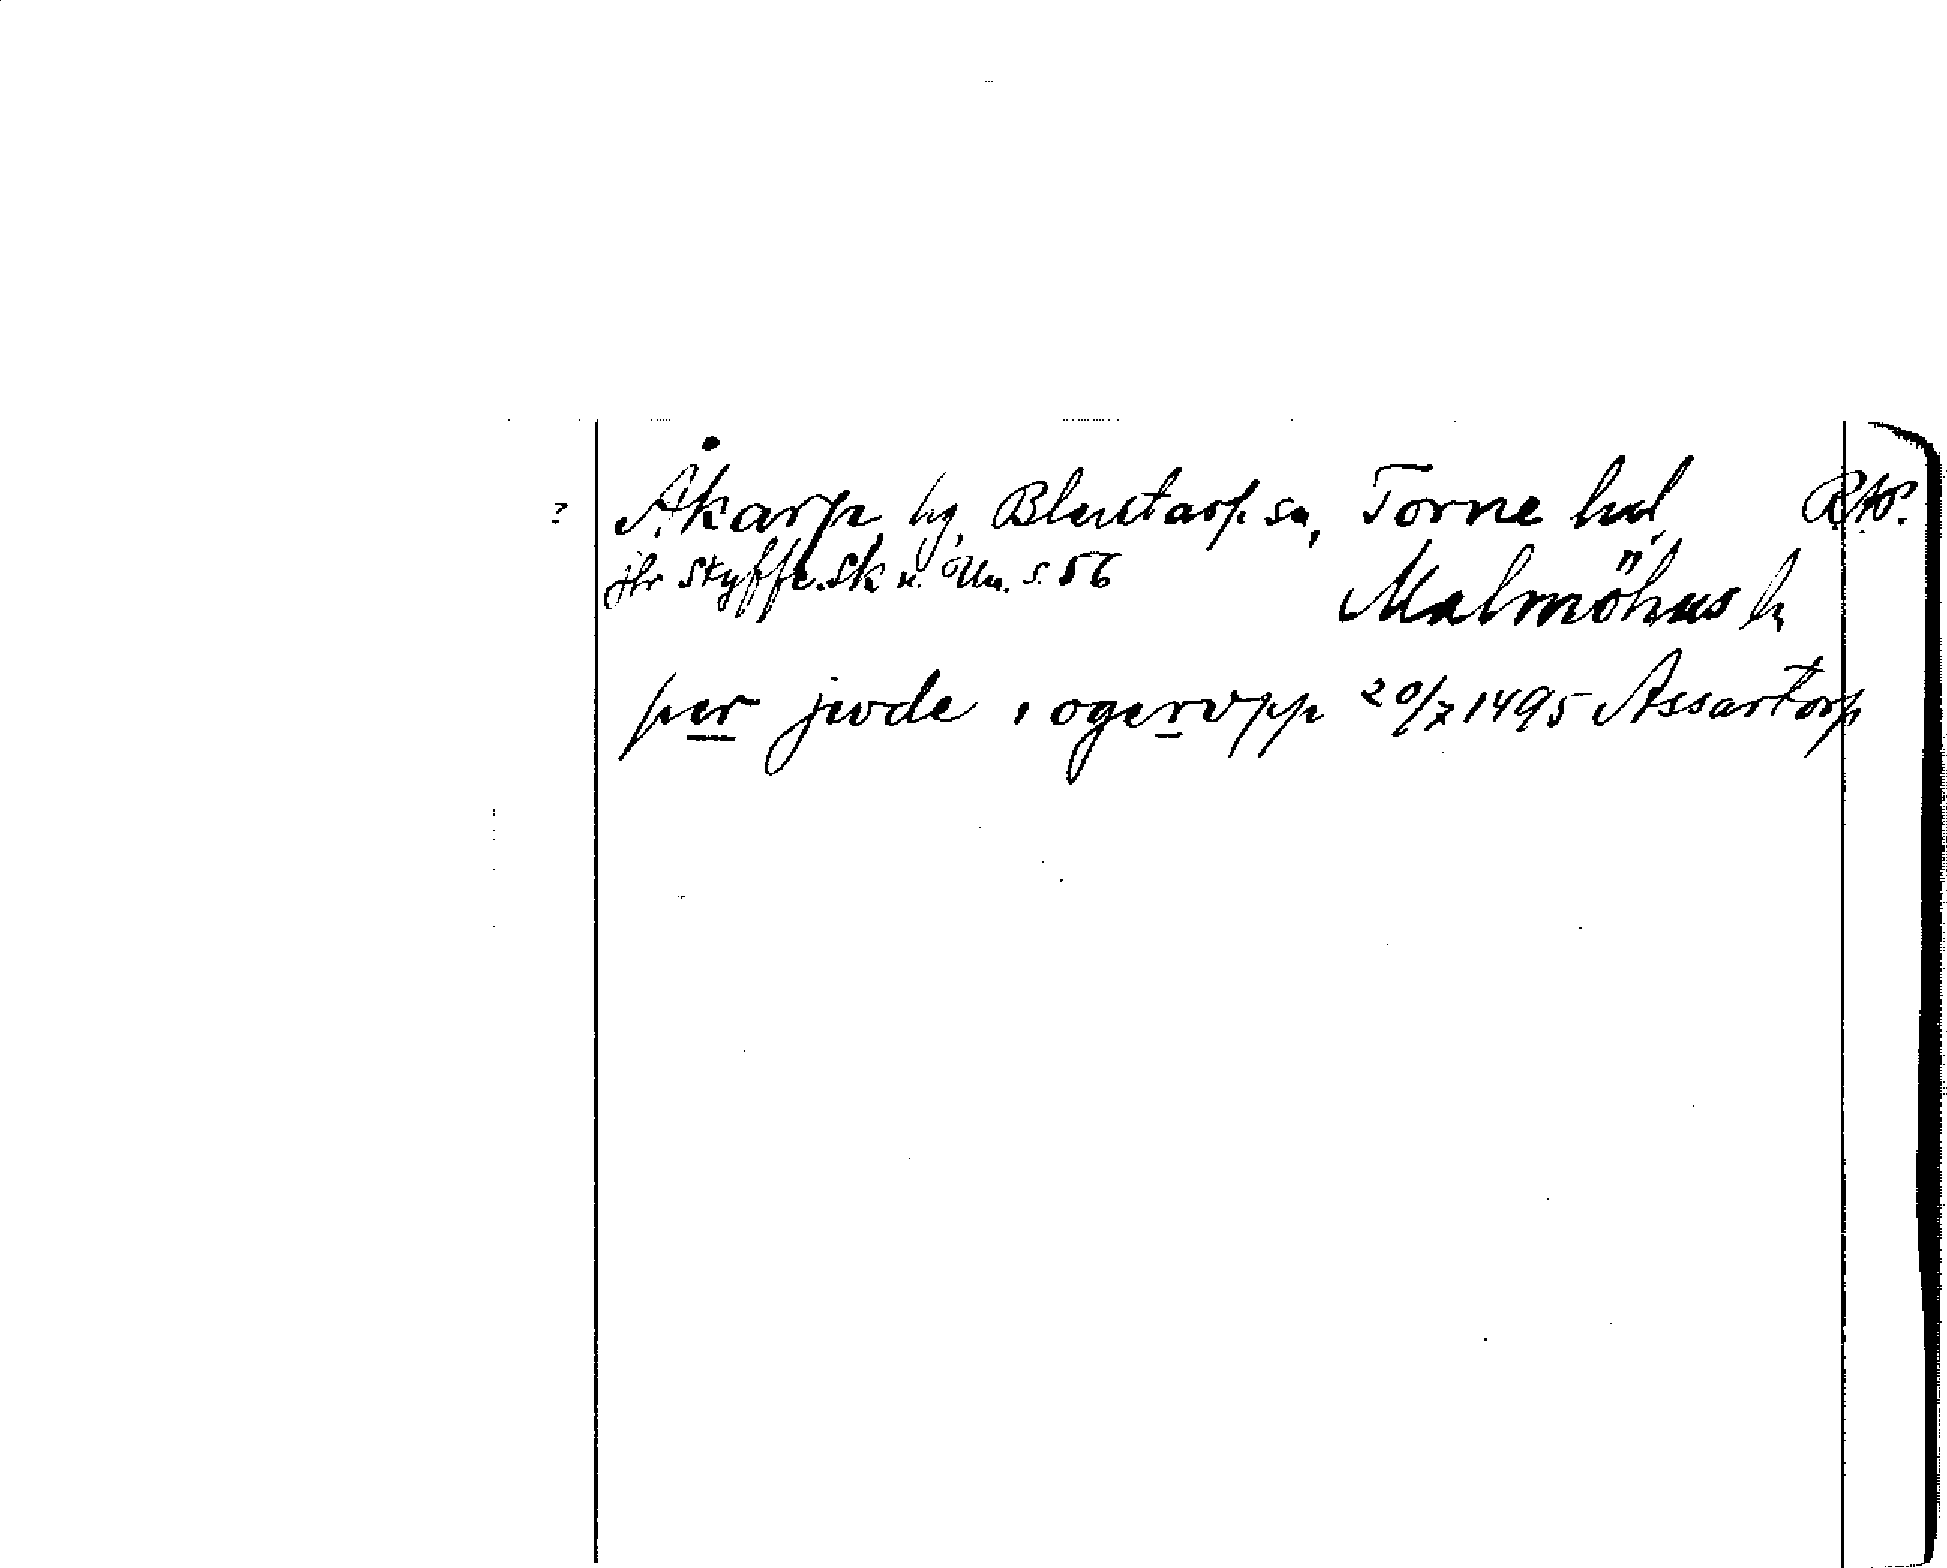 ? Åkarp, by, Blentarp sn, Torne hd, RAP.
jfr Styffe. Sk u. Un. s. 56
Malmöhus l.
per jwde i ogervpp 20/7 1495 Assartorp